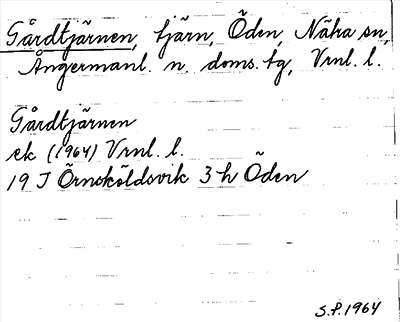 Gårdtjärnen, tjärn, Öden, Nätra sn,
Ångermanl. n. doms. tg, Vrnl. l.
Gårdtjärnen
ek (1964) Vrnl. l.
19 J Örnsköldsvik 3 h Öden
S.P. 1964